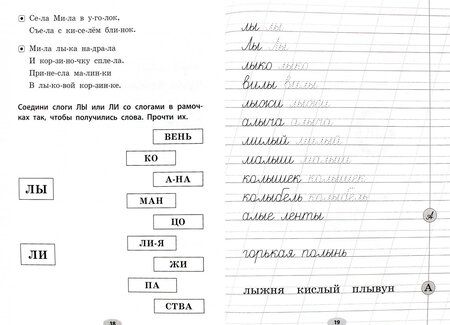 Се-ла Ми-ла в у-го-лок.
Съе-ла с ки-се-лём бли-нок.
Ми-ла лы-ка на-дра-ла
И кор-зи-но-чку спле-ла.
При-не-сла ма-лин-ки
В лы-ко-вой кор-зин-ке.
Соедини слоги ЛЫ или ЛИ со слогами в рамоч-
ках так, чтобы получились слова. Прочти их.
ВЕНЬ
КО
А-НА
ЛЫ
МАН
ЦО
ЛИ
ЛИ-Я
ЖИ
ПА
СТВА
18
лы лы
Лы Лы
лыко лыко
вилы вилы
лыжи лыжи
алыча алыча
милый милый
малыш малыш
колышек колышек
колыбель колыбель
алые ленты
А
горькая полынь
лыжня кислый плывун
А
19